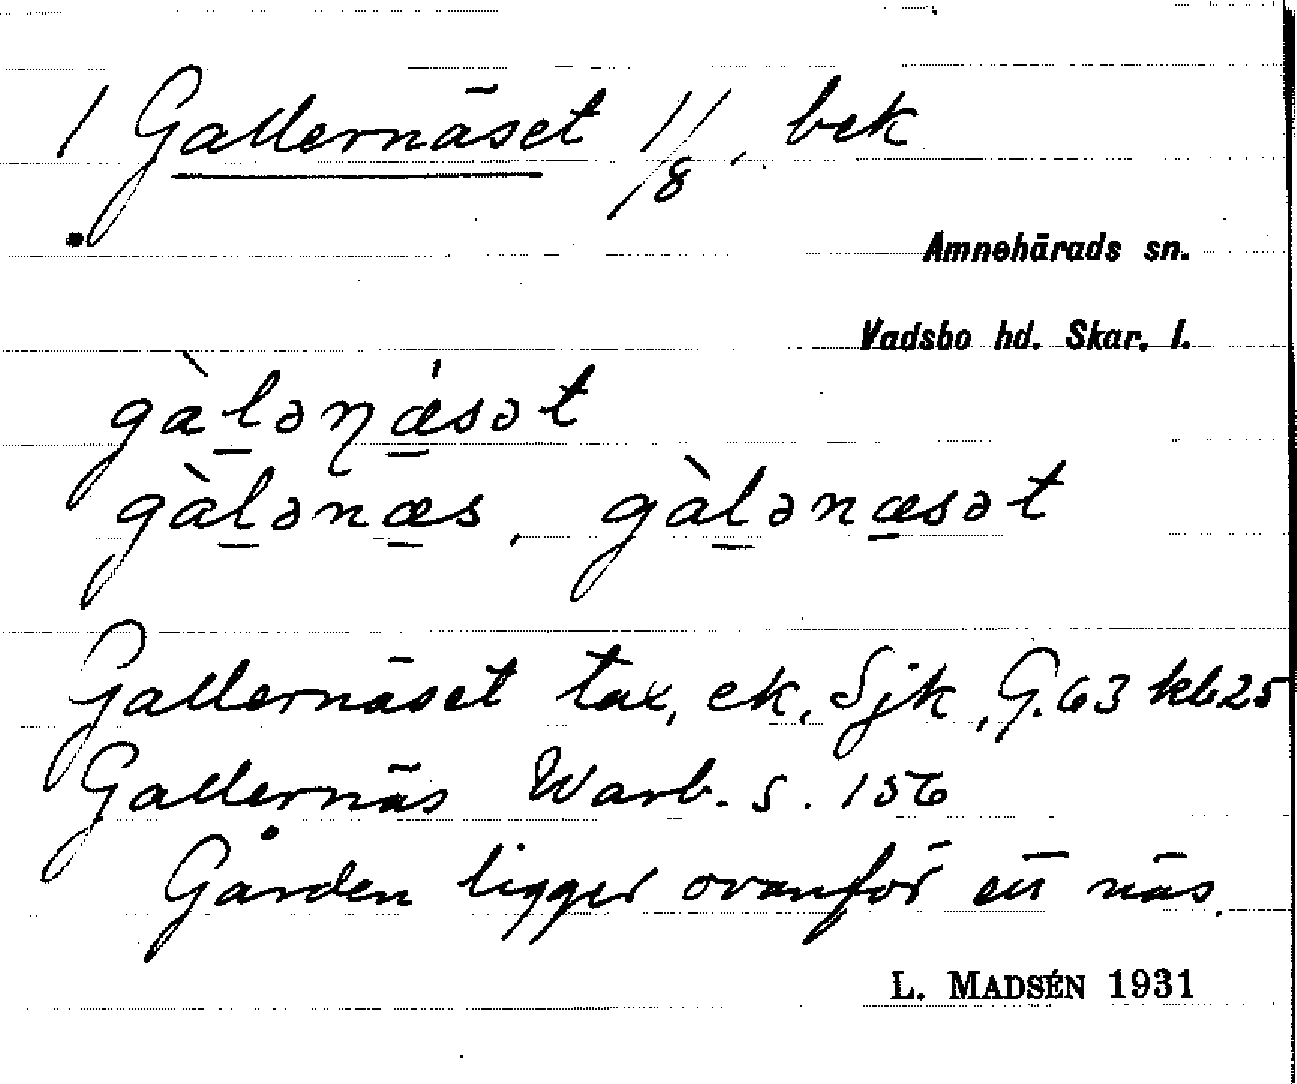 1 Gallernäset 1/8, bek
Amnehärads sn.
Vadsbo hd. Skar. l.
gàlənǽsət
gàlənæs, gàlənæsət
Gallernäset tax, ek, Sjk, G.63 kb25
Gallernäs Warb. s. 156
Gården ligger ovanför ett näs.
L. MADSÉN 1931